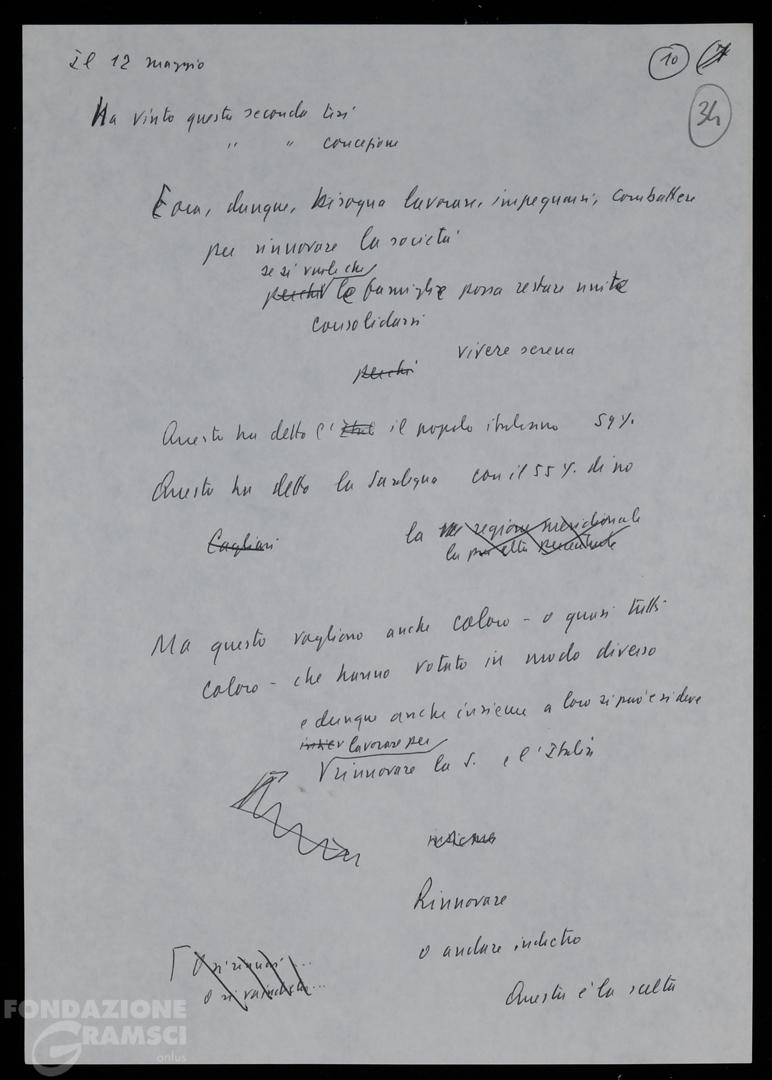 Il 12 maggio
10 7
34
Ha vinto questa seconda tesi
" " concezione
Ora, dunque, bisogna lavorare, impegnarsi, combattere
per rinnovare la società
se si vuole che
perché la famiglia possa restare unita
consolidarsi
vivere serena
perché
Questo ha detto l' il popolo italiano 59%
Questo ha detto la Sardegna con il 55%. di no
Cagliari la regione meridionale
la più alta percentuale
Ma questo vogliono anche coloro - o quasi tutti
coloro - che hanno votato in modo diverso
e dunque anche insieme a loro si può e si deve
lavorare per
rinnovare la S. e l'Italia
insieme
Rinnovare
o andare indietro
O si rinnova ...
o si va indietro ...
Questa è la scelta
FONDAZIONE
GRAMSCI
onlus